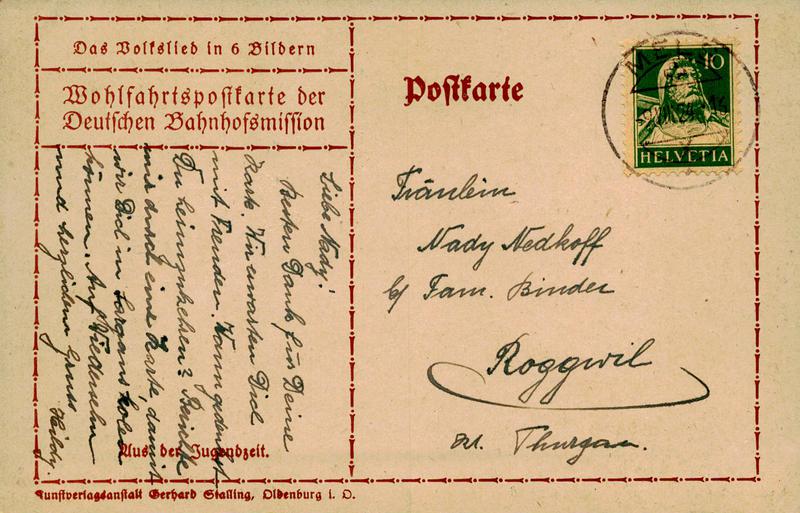 Das Volkslied in 6 Bildern
Wohlfahrtspostkarte der
Deutschen Bahnhofsmission
Postkarte
MELS
10
HELVETIA
Liebe Nady!
Besten Dank für Deine
Karte. Wir erwarten Dich
mit Freuden. Wann gedenkst
Du heimzukehren? Berichte
mir durch eine Karte, damit
wir Dich in Sargans holen
können. Auf Wiedersehn
und herzlichen Gruss
Heidy.
Fräulein
Nady Nedkoff
b/ Fam. Binder
Roggwil
Kt. Thurgau.
Aus der Jugendzeit.
Kunstverlagsanstalt Gerhard Stalling, Oldenburg i. O.